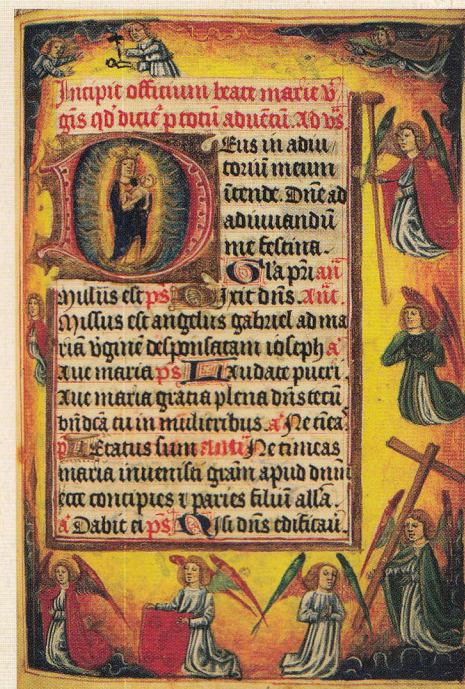 Incipit officium beate marie v̄
gīs qd' dicit' p totū aduētū. Ad vs̄
Deus in adiu
toriū meum
ītende. Dn̄e ad
adiuuandū
me festina.
Gla pri an̄
Missus est ps Dixit dn̄s. Ant.
Missus est angelus gabriel ad ma
riā v̄ginē desponsatam ioseph a
Aue maria ps Laudate pueri.
Aue maria gratia plena dn̄s tecū
bn̄dcā tu in mulieribus. a' Ne timeas
ps Letatus sum Anti Ne timeas
maria inuenisti grām apud dnm
ecce concipies ⁊ paries filiū alla.
a' Dabit ei ps Nisi dn̄s edificau.